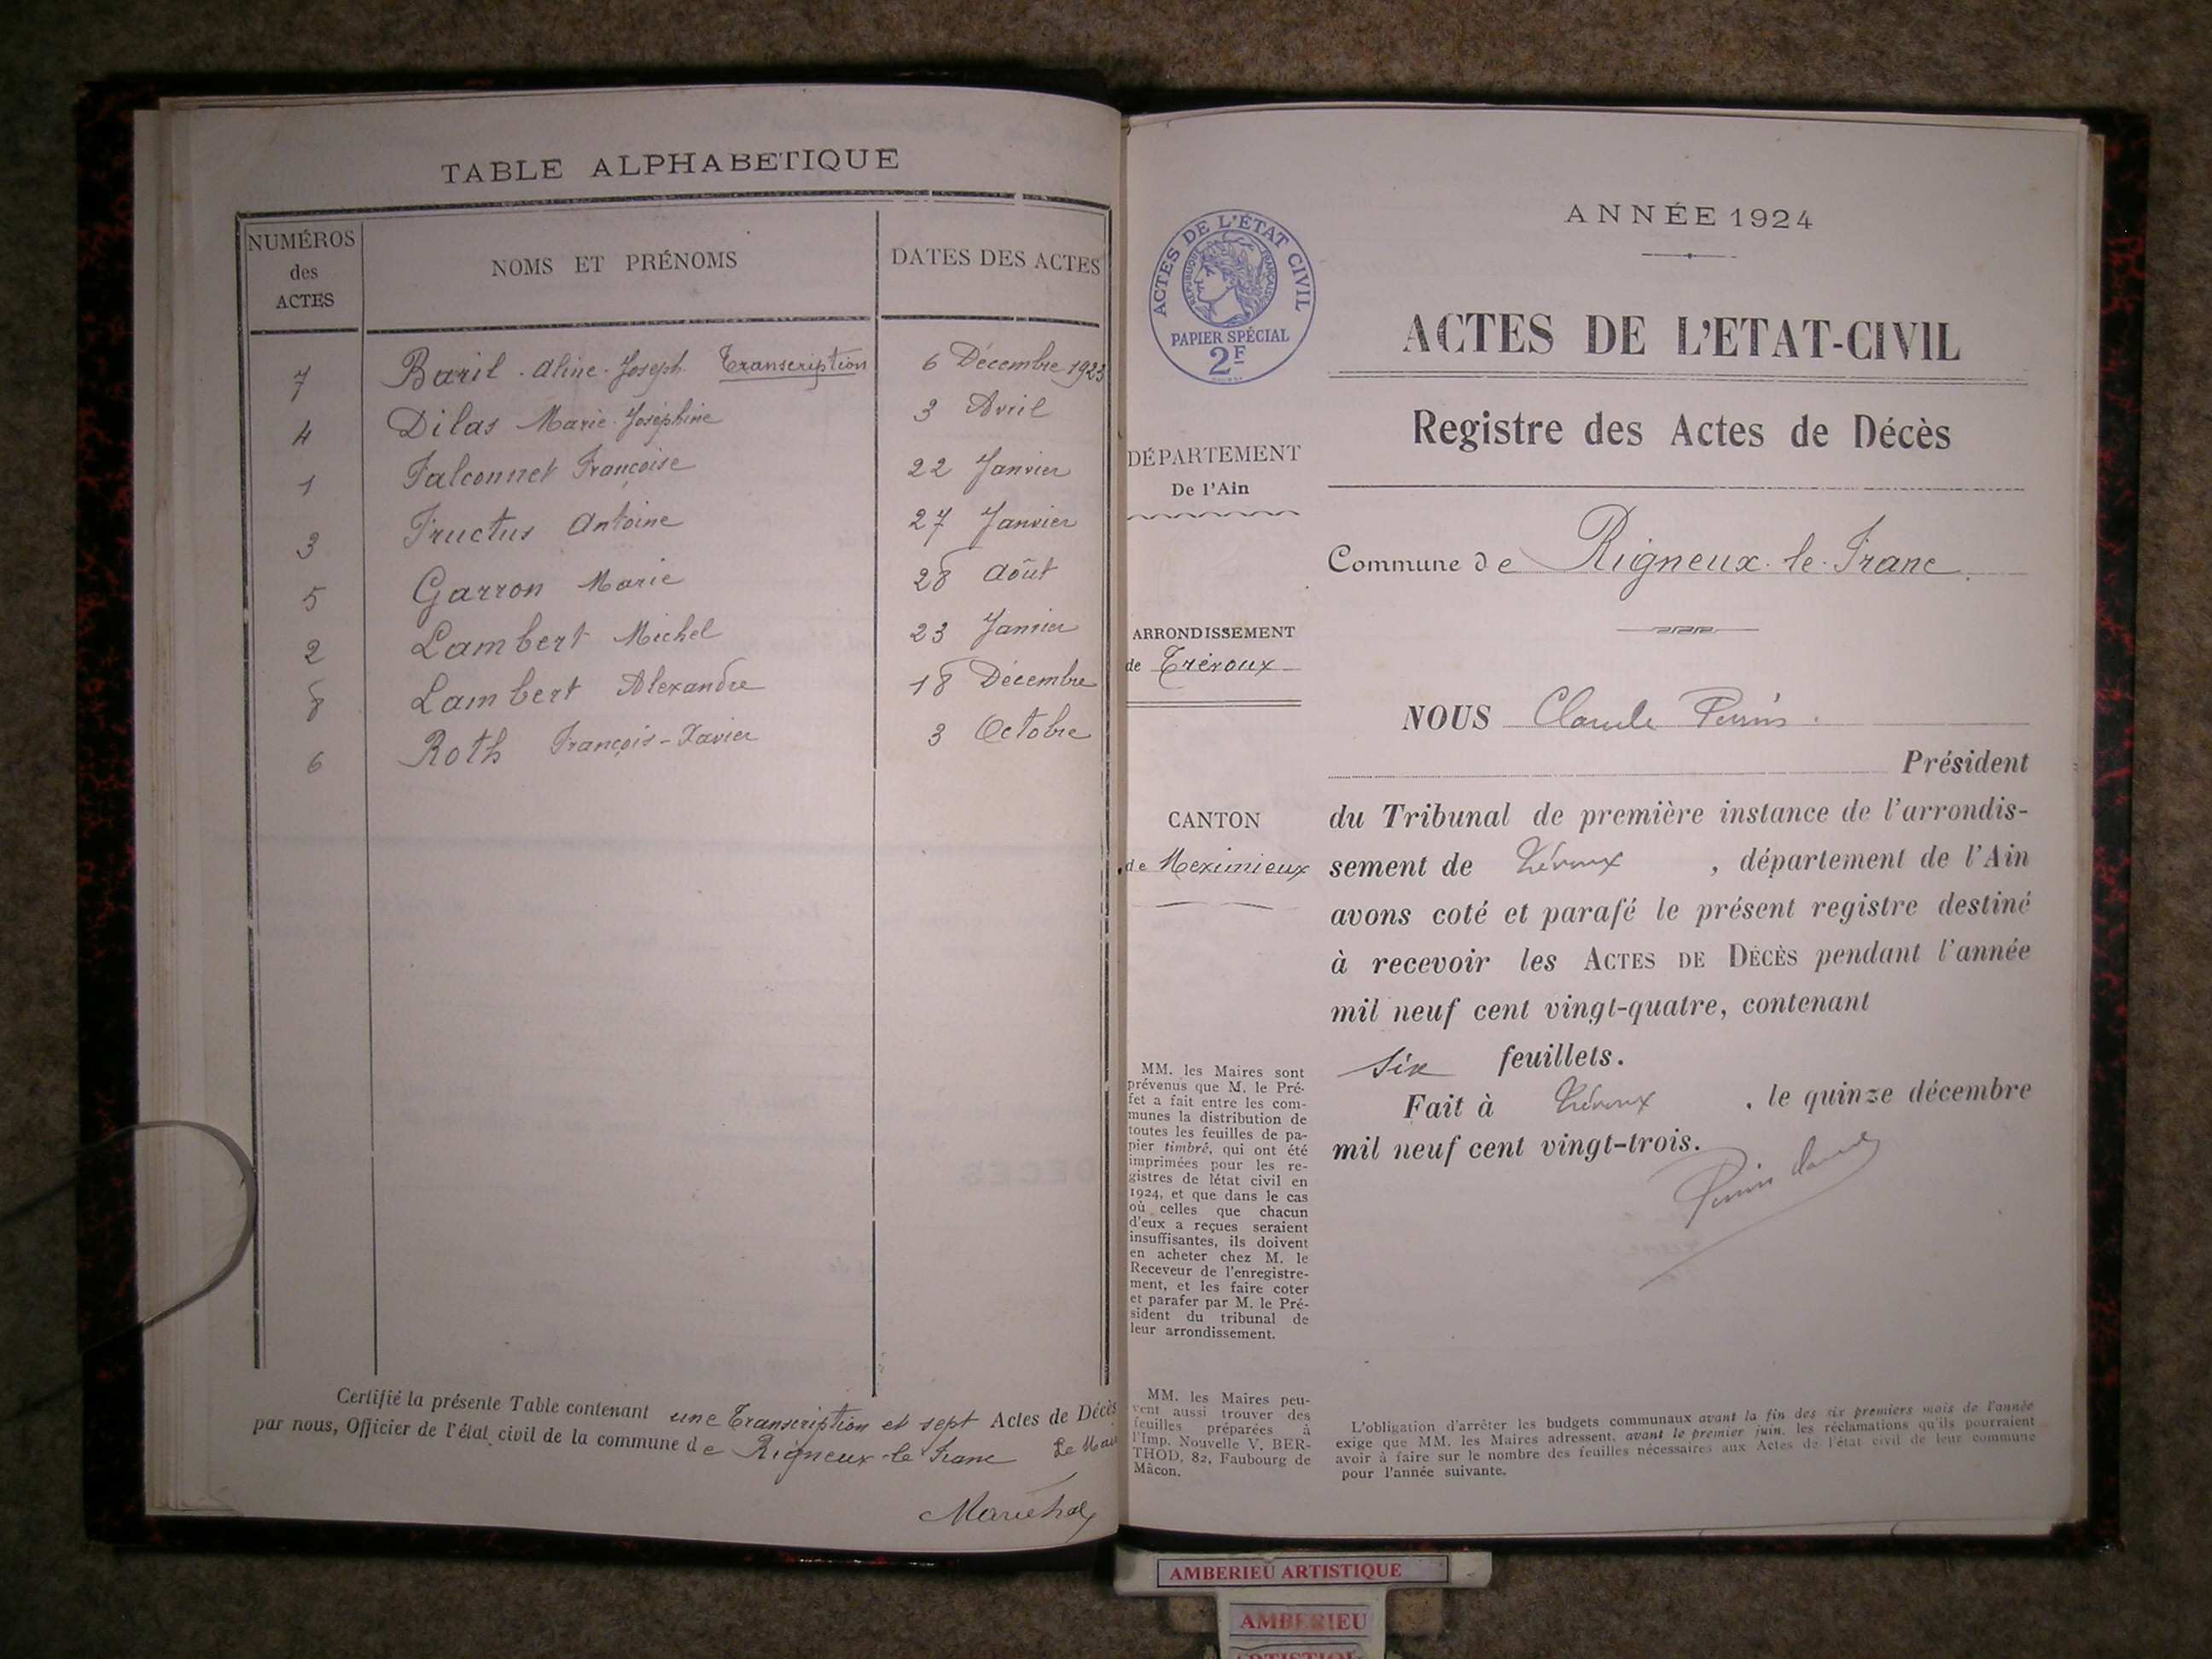 TABLE ALPHABETIQUE
NUMÉROS des ACTES NOMS ET PRÉNOMS DATES DES ACTES
7 Baril . Aline . Joseph. Transcription 6 Décembre 1923
4 Dilas Marie Joséphine 3 Avril
1 Falconnet Françoise 22 Janvier
3 Fructus Antoine 27 Janvier
5 Garron Marie 28 Août
2 Lambert Michel 23 Janvier
8 Lambert Alexandre 18 Décembre
6 Roth François-Xavier 3 Octobre
Certifié la présente Table contenant une Transcription et sept Actes de Décès
par nous, Officier de l'état civil de la commune de Rigneux-le-Franc Le Mai
Maréchal
ACTES DE L'ÉTAT CIVIL
RÉPUBLIQUE FRANÇAISE
PAPIER SPÉCIAL
2F
DÉPARTEMENT
De l'Ain
ARRONDISSEMENT
de Trévoux
CANTON
de Meximieux
MM. les Maires sont
prévenus que M. le Pré-
fet a fait entre les com-
munes la distribution de
toutes les feuilles de pa-
pier timbré, qui ont été
imprimées pour les re-
gistres de l'état civil en
1924, et que dans le cas
où celles que chacun
d'eux a reçues seraient
insuffisantes, ils doivent
en acheter chez M. le
Receveur de l'enregistre-
ment, et les faire coter
et parafer par M. le Pré-
sident du tribunal de
leur arrondissement.
MM. les Maires peu-
vent aussi trouver des
feuilles préparées à
l'Imp. Nouvelle V. BER-
THOD, 82, Faubourg de
Mâcon.
ANNÉE 1924
ACTES DE L'ETAT-CIVIL
Registre des Actes de Décès
Commune de Rigneux-le-Franc.
NOUS Claude Perrin.
Président
du Tribunal de première instance de l'arrondis-
sement de Trévoux , département de l'Ain
avons coté et parafé le présent registre destiné
à recevoir les ACTES DE DÉCÈS pendant l'année
mil neuf cent vingt-quatre, contenant
six feuillets.
Fait à Trévoux , le quinze décembre
mil neuf cent vingt-trois.
Perrin Claude
L'obligation d'arrêter les budgets communaux avant la fin des six premiers mois de l'année
exige que MM. les Maires adressent, avant le premier juin, les réclamations qu'ils pourraient
avoir à faire sur le nombre des feuilles nécessaires aux Actes de l'état civil de leur commune
pour l'année suivante.
AMBERIEU ARTISTIQUE
AMBERIEU
ARTISTIQUE